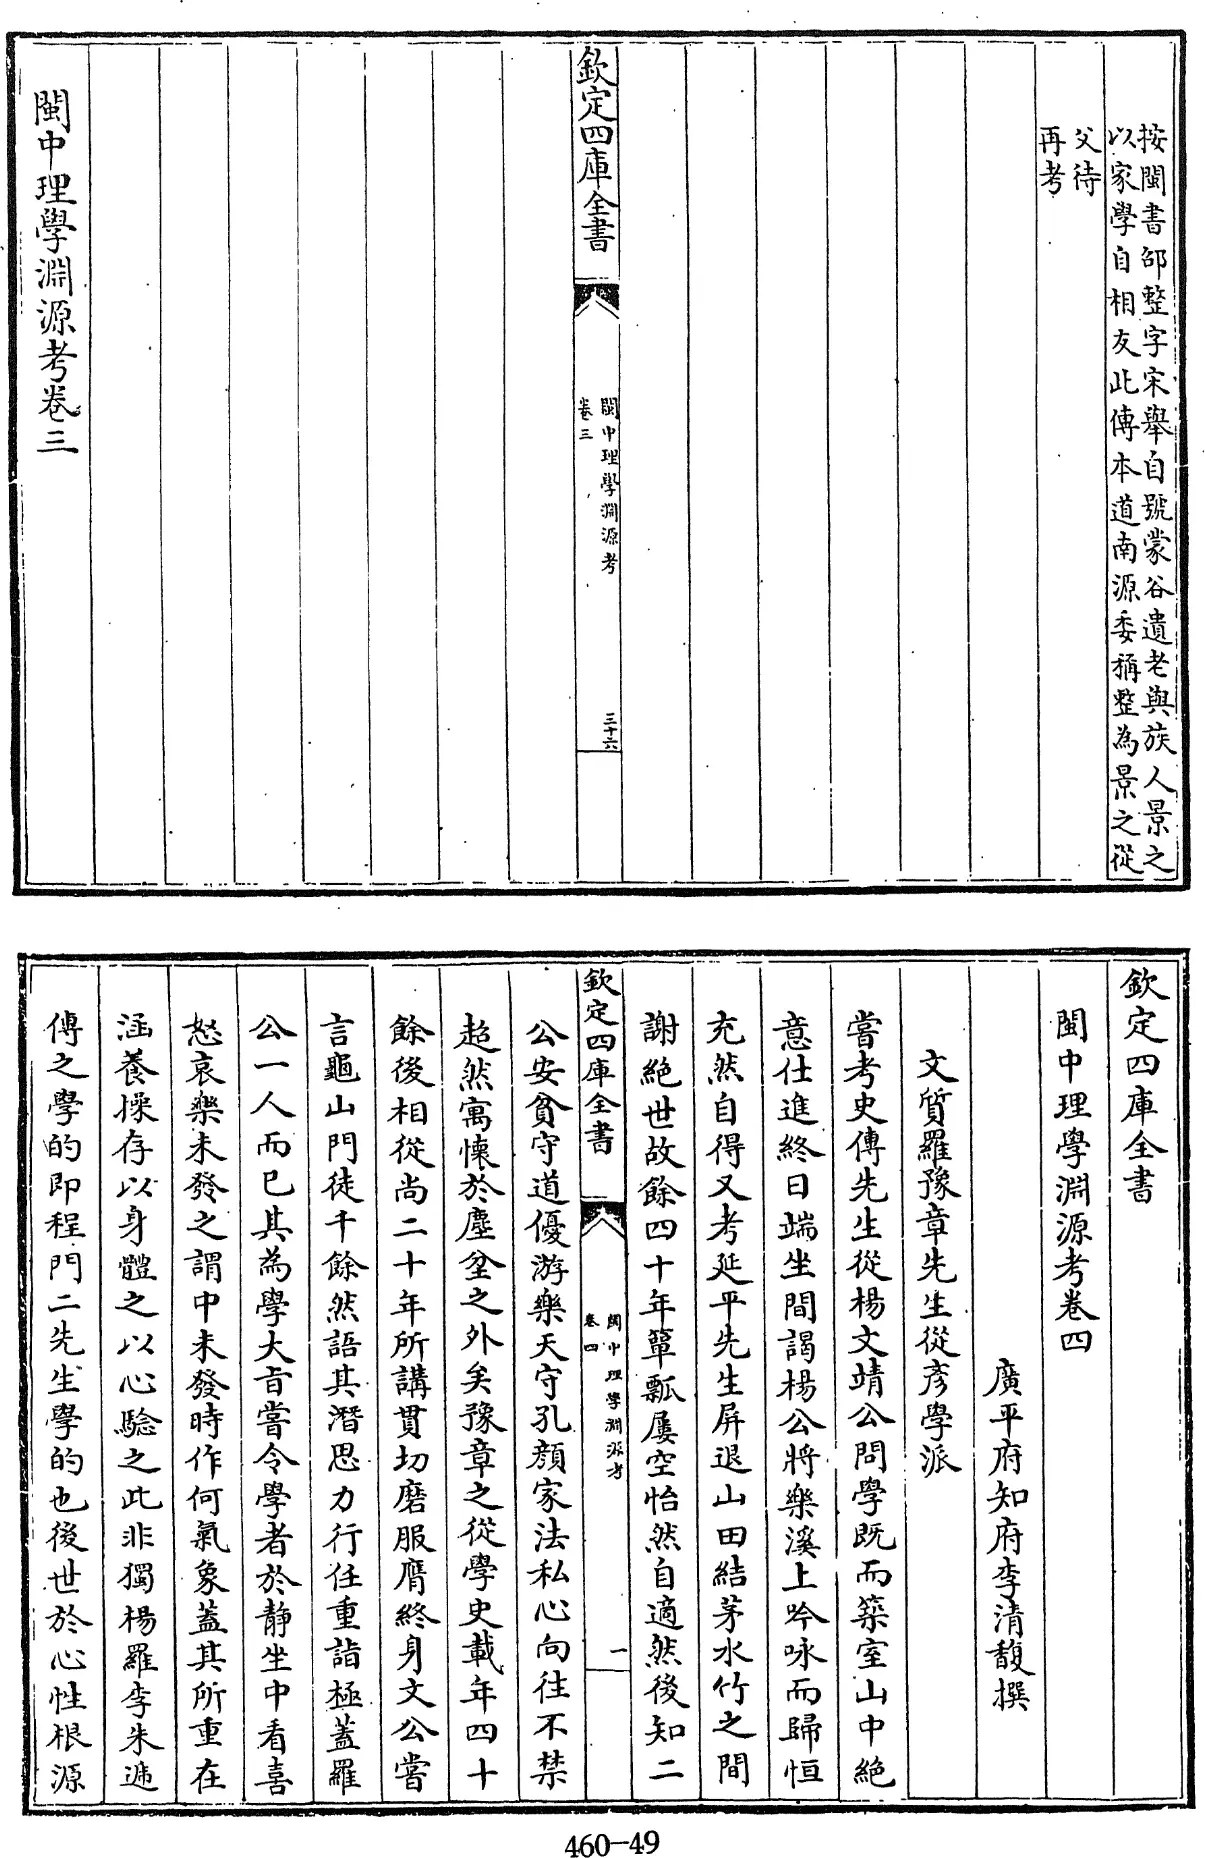 按閩書邵整字宋舉自號蒙谷遺老與族人景之
以家學自相友此傳本道南源委稱整為景之從
父待
再考
欽定四庫全書
閩中理學淵源考
卷三
三十六
閩中理學淵源考卷三
欽定四庫全書
閩中理學淵源考卷四
廣平府知府李清馥撰
文質羅豫章先生從彥學派
嘗考史傳先生從楊文靖公問學既而築室山中絶
意仕進終日端坐間謁楊公將樂溪上吟咏而歸恒
充然自得又考延平先生屏退山田結茅水竹之間
謝絶世故餘四十年簞瓢屢空怡然自適然後知二
欽定四庫全書
閩中理學淵源考
卷四
一
公安貧守道優游樂天守孔顔家法私心向往不禁
超然寓懷於塵坌之外矣豫章之從學史載年四十
餘後相從尚二十年所講貫切磨服膺終身文公嘗
言龜山門徒千餘然語其潛思力行任重詣極蓋羅
公一人而已其為學大旨嘗令學者於靜坐中看喜
怒哀樂未發之謂中未發時作何氣象蓋其所重在
涵養操存以身體之以心驗之此非獨楊羅李朱遞
傳之學的即程門二先生學的也後世於心性根源
460-49